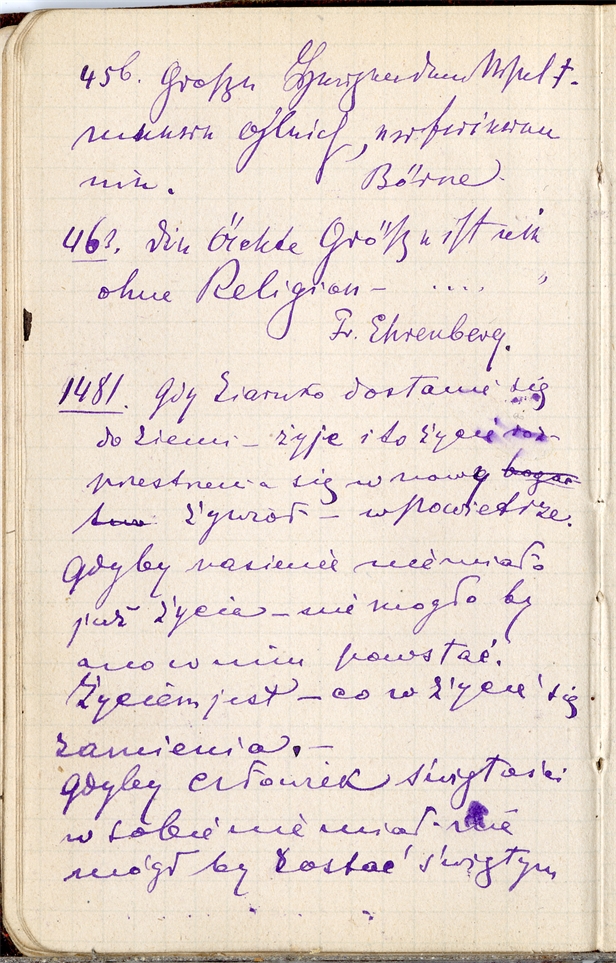 456. Große
Börne
463. Die ächte Größe ist nie
ohne Religion – ....
Fr. Ehrenberg.
1481. Gdy ziarnko dostanie się
do ziemi – żyje i to życie roz-
przestrzenia się w nowy
żywioł – w powietrze.
Gdyby nasienie nie miało
już życia – nie mogło by
ono w nim powstać.
Życiem jest – co w życie się
zamienia. –
Gdyby człowiek świętości
w sobie nie miał – nie
mógł by zostać świętym